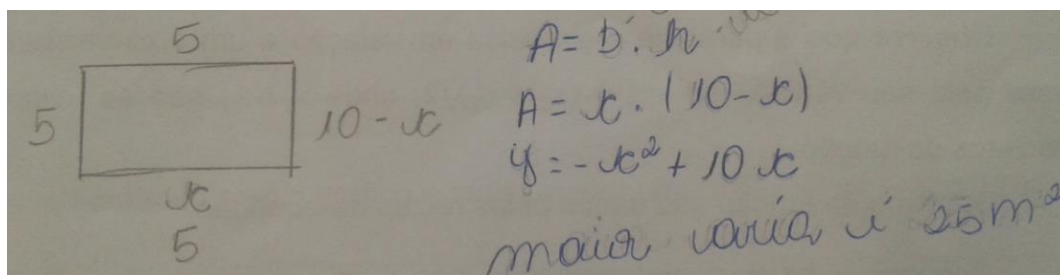 5
5
10 - x
x
5
A = b . h
A = x . (10 - x)
y = - x² + 10 x
maior varia é 25m²